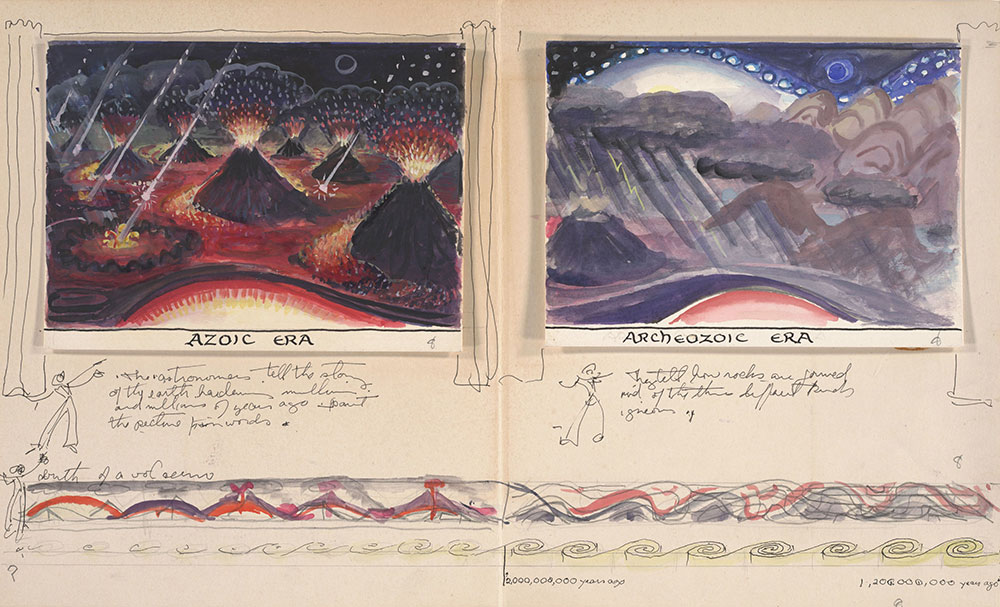 AZOIC ERA
8
ARCHEOZOIC ERA
8
The astronomers tell the story
of the earth hardening millions
and millions of years ago
the picture words
They tell how rocks are formed
and of the three different kinds
igneous
8
birth of a volcano
2,000,000,000 years ago
1,200,000,000 years ago